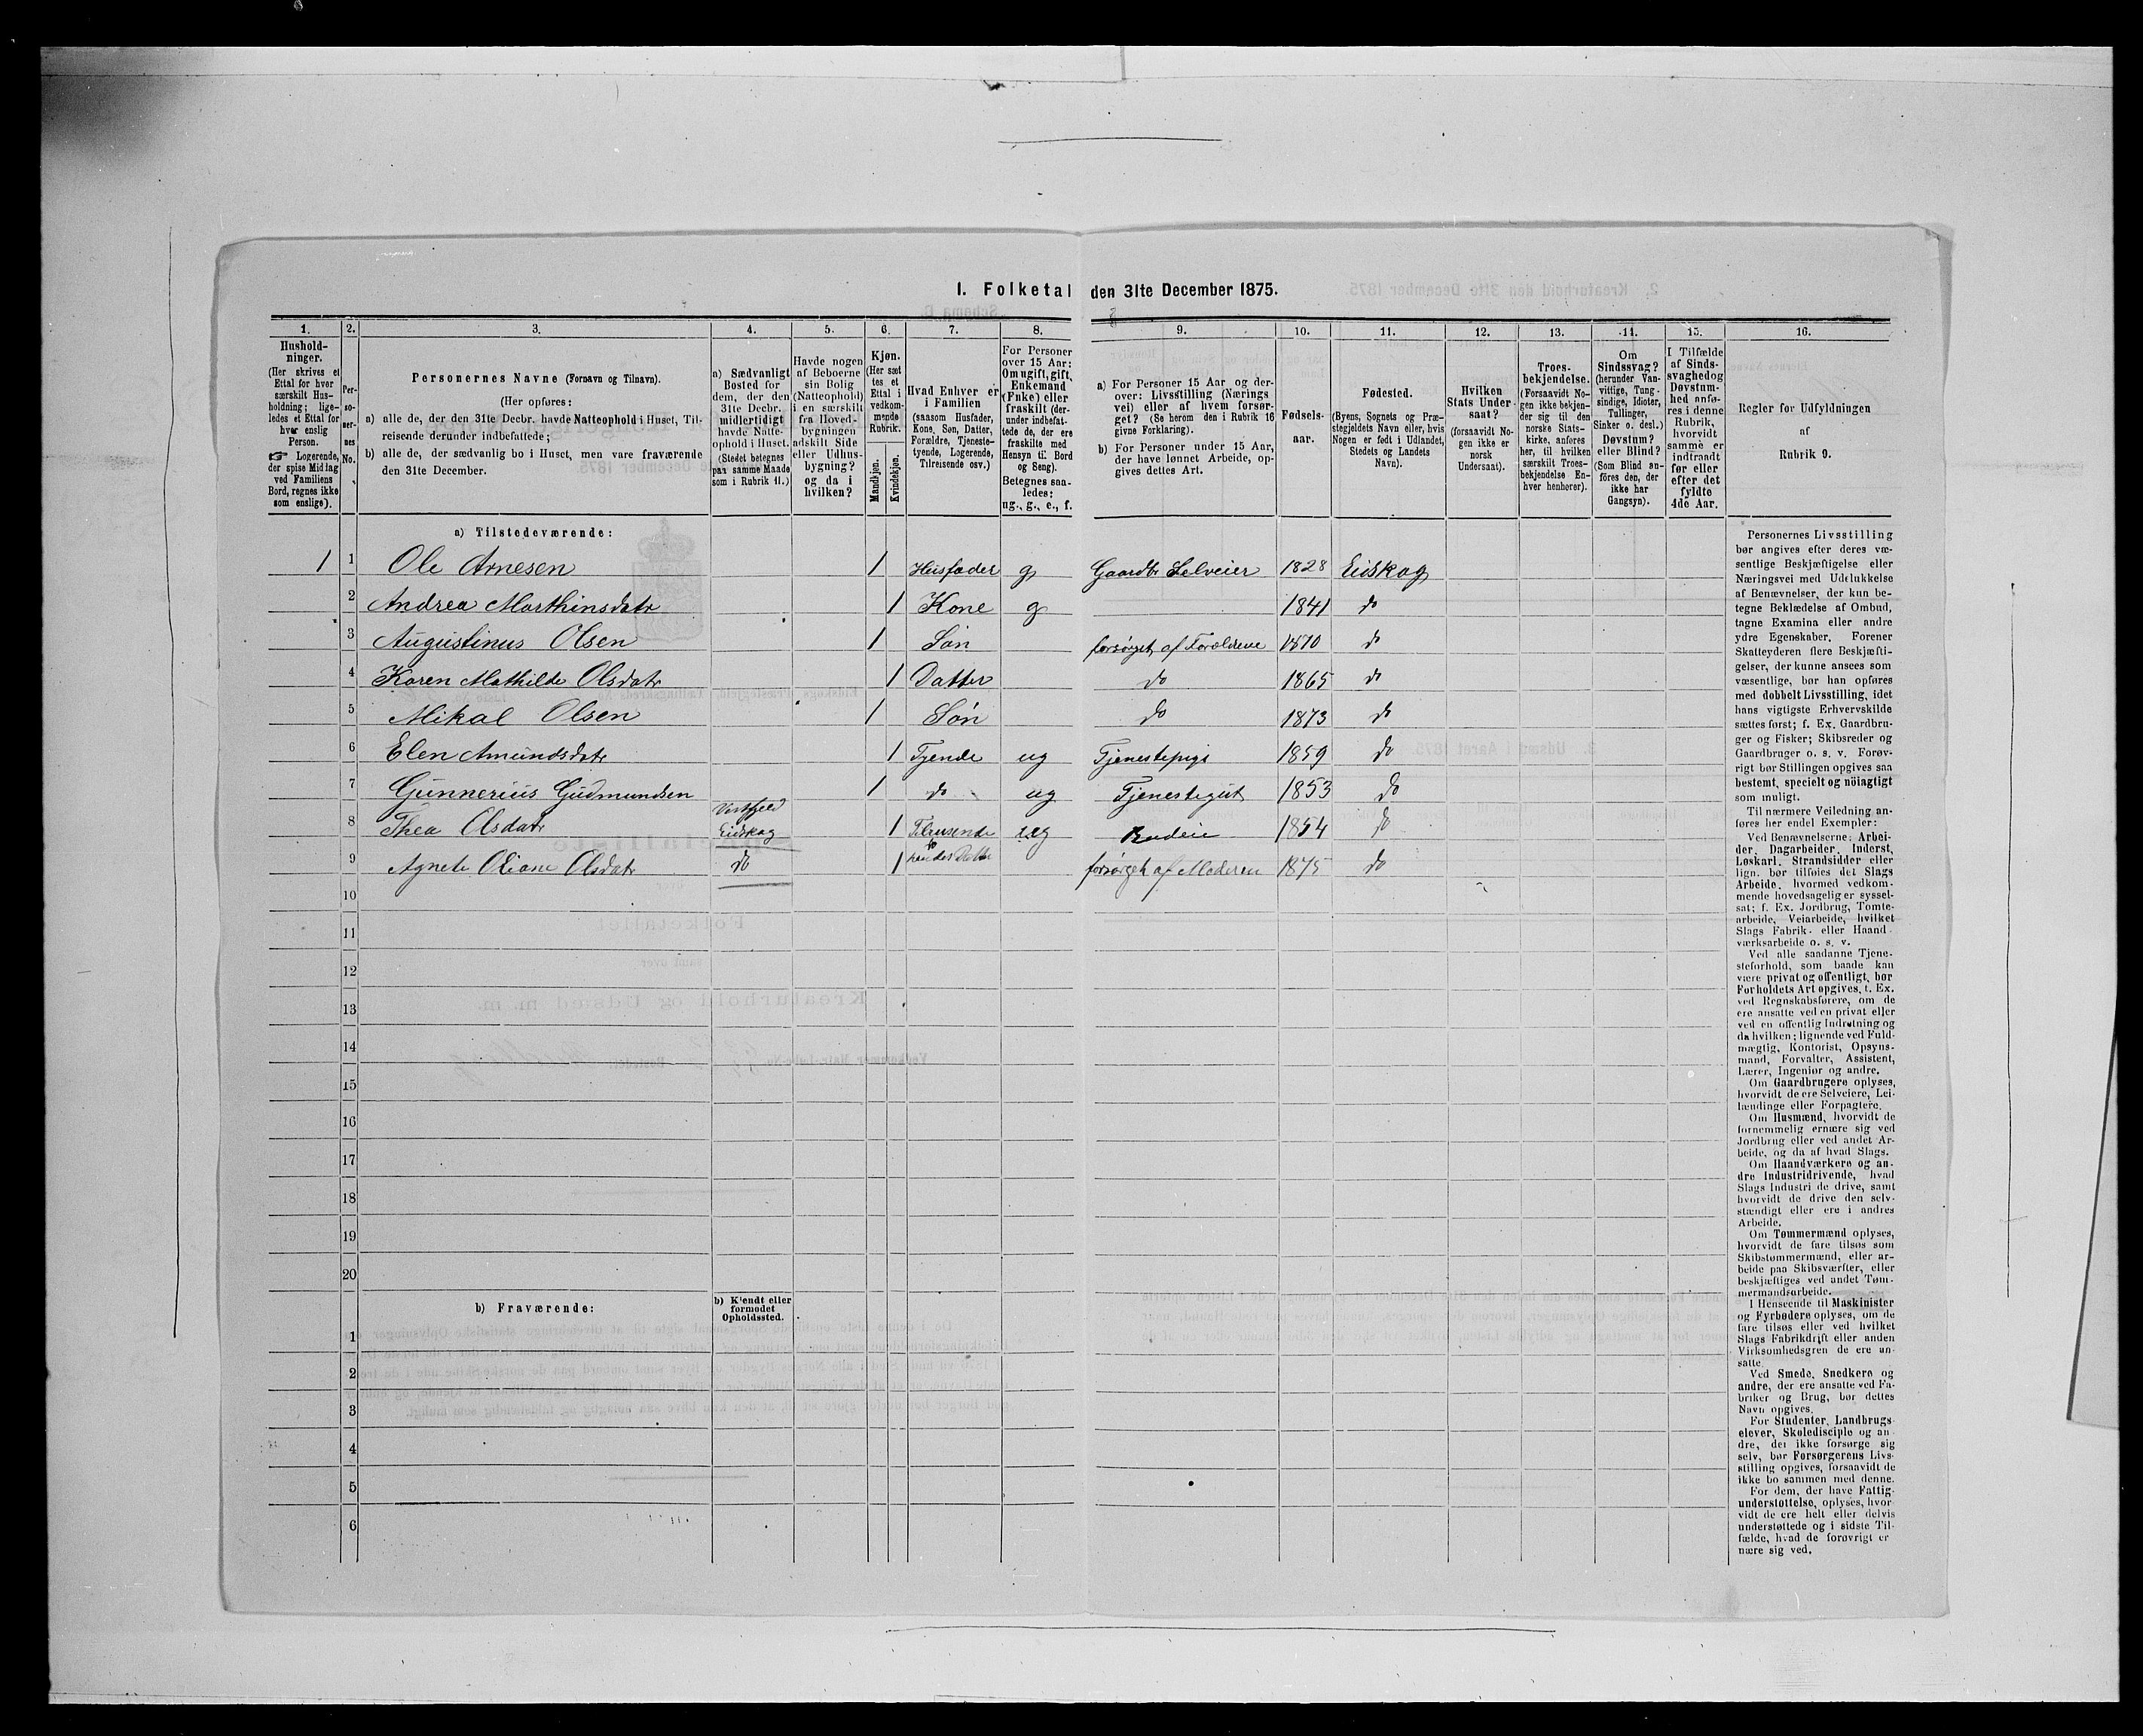 1. Folketal den 31te December 1875.
1. 2. 3. 4. 5. 6. 7. 8. 9. 10. 11. 12. 13. 14. 15. 16.
Hushold-
ninger.
(Her skrives et
Ettal for hver
særskilt Hus-
holdning; lige-
ledes et Ettal for
hver enslig
Person.
☞ Logerende,
der spise Middag
ved Familiens
Bord, regnes ikke
som enslige).
Per-
so-
ner-
nes
No.
Personernes Navne (Fornavn og Tilnavn).
(Her opføres:
a) alle de, der den 31te Decbr. havde Natteophold i Huset, Til-
reisende derunder indbefattede;
b) alle de, der sædvanlig bo i Huset, men vare fraværende
den 31te December.
a) Sædvanligt
Bosted for
dem, der den
31te Decbr.
midlertidigt
havde Natte-
ophold i Huset.
(Stedet betegnes
paa samme Maade
som i Rubrik 11.)
Havde nogen
af Beboerne
sin Bolig
(Natteophold)
i en særskilt
fra Hoved-
bygningen
adskilt Side
eller Udhus-
bygning?
og da i
hvilken?
Kjøn.
(Her sæt
tes et
Ettal i
vedkom-
mende
Rubrik.
Mandkjøn.
Kvindekjøn.
Hvad Enhver er
i Familien
(saasom Husfader,
Kone, Søn, Datter,
Forældre, Tjeneste-
tyende, Logerende,
Tilreisende osv.)
For Personer
over 15 Aar:
Om ugift, gift,
Enkemand
(Enke) eller
fraskilt (der-
under indbefat-
tede de, der ere
fraskilte med
Hensyn til Bord
og Seng).
Betegnes saa-
ledes:
ug., g., e., f.
a) For Personer 15 Aar og der-
over: Livsstilling (Nærings
vei) eller af hvem forsør-
get? (Se herom den i Rubrik 16
givne Forklaring).
b) For Personer under 15 Aar,
der have lønnet Arbeide, op-
gives dettes Art.
Fødsels-
aar.
Fødested.
(Byens, Sognets og Præ-
stegjeldets Navn eller, hvis
Nogen er født i Udlandet,
Stedets og Landets
Navn).
Hvilken
Stats Under-
saat?
(forsaavidt No-
gen ikke er
norsk
Undersaat).
Troes-
bekjendelse.
(Forsaavidt No-
gen ikke bekjen-
der sig til den
norske Stats-
kirke, anføres
her, til hvilken
særskilt Troes-
bekjendelse En-
hver henhører).
Om
Sindssvag?
(herunder Van-
vittige, Tung-
sindige, Idioter,
Tullinger,
Sinker o. desl.)
Døvstum?
eller Blind?
(Som Blind an-
føres den, der
ikke har
Gangsyn).
I Tilfælde
af Sinds-
svaghed og
Døvstum-
hed anfø-
res i denne
Rubrik,
hvorvidt
samme er
indtraadt
før eller
efter det
fyldte
4de Aar.
Regler for Udfyldningen
af
Rubrik 9.
a) Tilstedeværende:
1 1 Ole Arnesen 1 Husfader g Gaardbr Selveier 1828 Eidskog
2 Andrea Marthinsdatr 1 Kone g 1841 do
3 Augustinus Olsen 1 Søn forsørget af Forældrene 1870 do
4 Karen Mathilde Olsdatr 1 Datter do 1865 do
5 Mikal Olsen 1 Søn do 1873 do
6 Elen Amundsdatr 1 Tjende ug Tjenestepige 1859 do
7 Gunnerius Gudmundsen 1 do ug Tjenestegut 1853 do
8 Thea Olsdatr Eidskog 1 Tilreisende ug Budeie 1854 do
9 Agnete Oliane Olsdatr do 1 hendes Datter forsørget af Moderen 1875 do
10
11
12
13
14
15
16
17
18
19
20
b) Fraværende:
b) Kjendt eller
formodet
Opholdssted.
1
2
3
4
5
6
Personernes Livsstilling
bør angives efter deres væ-
sentlige Beskjæftigelse eller
Næringsvei med Udelukkelse
af Benævnelser, der kun be-
tegne Beklædelse af Ombud,
tagne Examina eller andre
ydre Egenskaber. Forener
Skatteyderen flere Beskjæfti-
gelser, der kunne ansees som
væsentlige, bør han opføres
med dobbelt Livsstilling, idet
hans vigtigste Erhvervskilde
sættes først; f. Ex. Gaardbru-
ger og Fisker; Skibsreder og
Gaardbruger o. s. v. Forøv-
rigt bør Stillingen opgives saa
bestemt, specielt og nöiagtigt
som muligt.
Til nærmere Veiledning an-
føres her endel Exempler:
Ved Benævnelserne: Arbei-
der, Dagarbeider, Inderst,
Løskarl, Strandsidder eller
lign. bør tilføies det Slags
Arbeide, hvormed vedkom-
mende hovedsagelig er syssel-
sat; f. Ex. Jordbrug, Tomte-
arbeide, Veiarbeide, hvilket
Slags Fabrik- eller Haand-
værksarbeide o. s. v.
Ved alle saadanne Tjene-
steforhold, som baade kan
være privat og offentligt, bør
Forholdets Art opgives, t. Ex.
ved Regnskabsførere, om de
ere ansatte ved en privat eller
ved en offentlig Indretning og
da hvilken; lignende ved Fuld-
mægtig, Kontorist, Opsyns-
mand, Forvalter, Assistent,
Lærer, Ingeniør og andre.
Om Gaardbrugere oplyses,
hvorvidt de ere Selveiere, Lei-
lændinge eller Forpagtere.
Om Husmænd, hvorvidt de
fornemmelig ernære sig ved
Jordbrug eller ved andet Ar-
beide, og da af hvad Slags.
Om Haandværkere og an-
dre Industridrivende, hvad
Slags Industri de drive, samt
hvorvidt de drive den selv-
stændigt eller ere i andres
Arbeide.
Om Tømmermænd oplyses,
hvorvidt de fare tilsøs som
Skibstømmermænd, eller ar-
beide paa Skibsværfter, eller
beskjæftiges ved andet Tøm-
mermandsarbeide.
I Henseende til Maskinister
og Fyrbødere oplyses, om de
fare tilsøs eller ved hvilket
Slags Fabrikdrift eller anden
Virksomhedsgren de ere an-
satte.
Ved Smede, Snedkere og
andre, der ere ansatte ved Fa-
briker og Brug, bør dettes
Navn opgives.
For Studenter, Landbrugs-
elever, Skoledisciple og an-
dre, der ikke forsørge sig
selv, bør Forsørgerens Livs-
stilling opgives, forsaavidt de
ikke bo sammen med denne.
For dem, der have Fattig-
understøttelse, oplyses, hvor-
vidt de ere helt eller delvis
understøttede og i sidste Til-
fælde, hvad de forøvrigt er-
nære sig ved.